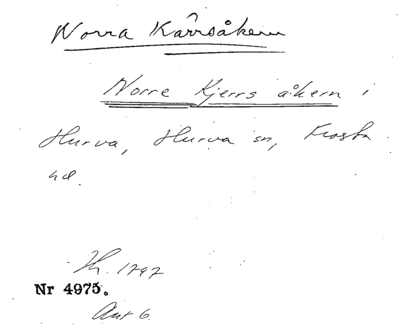 Norra Kärrsåkern
Norre Kjerrs åkern i
Hurva, Hurva sn, Frosta
hd.
1797
Nr 4975.
6.